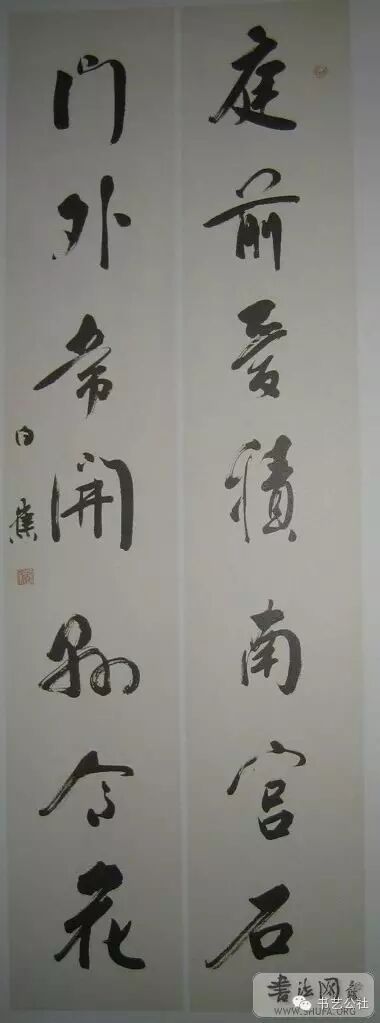 庭前積南宮石
門外常開縣令花
白蕉
書法网
WWW.SHUFA.ORG
书艺公社